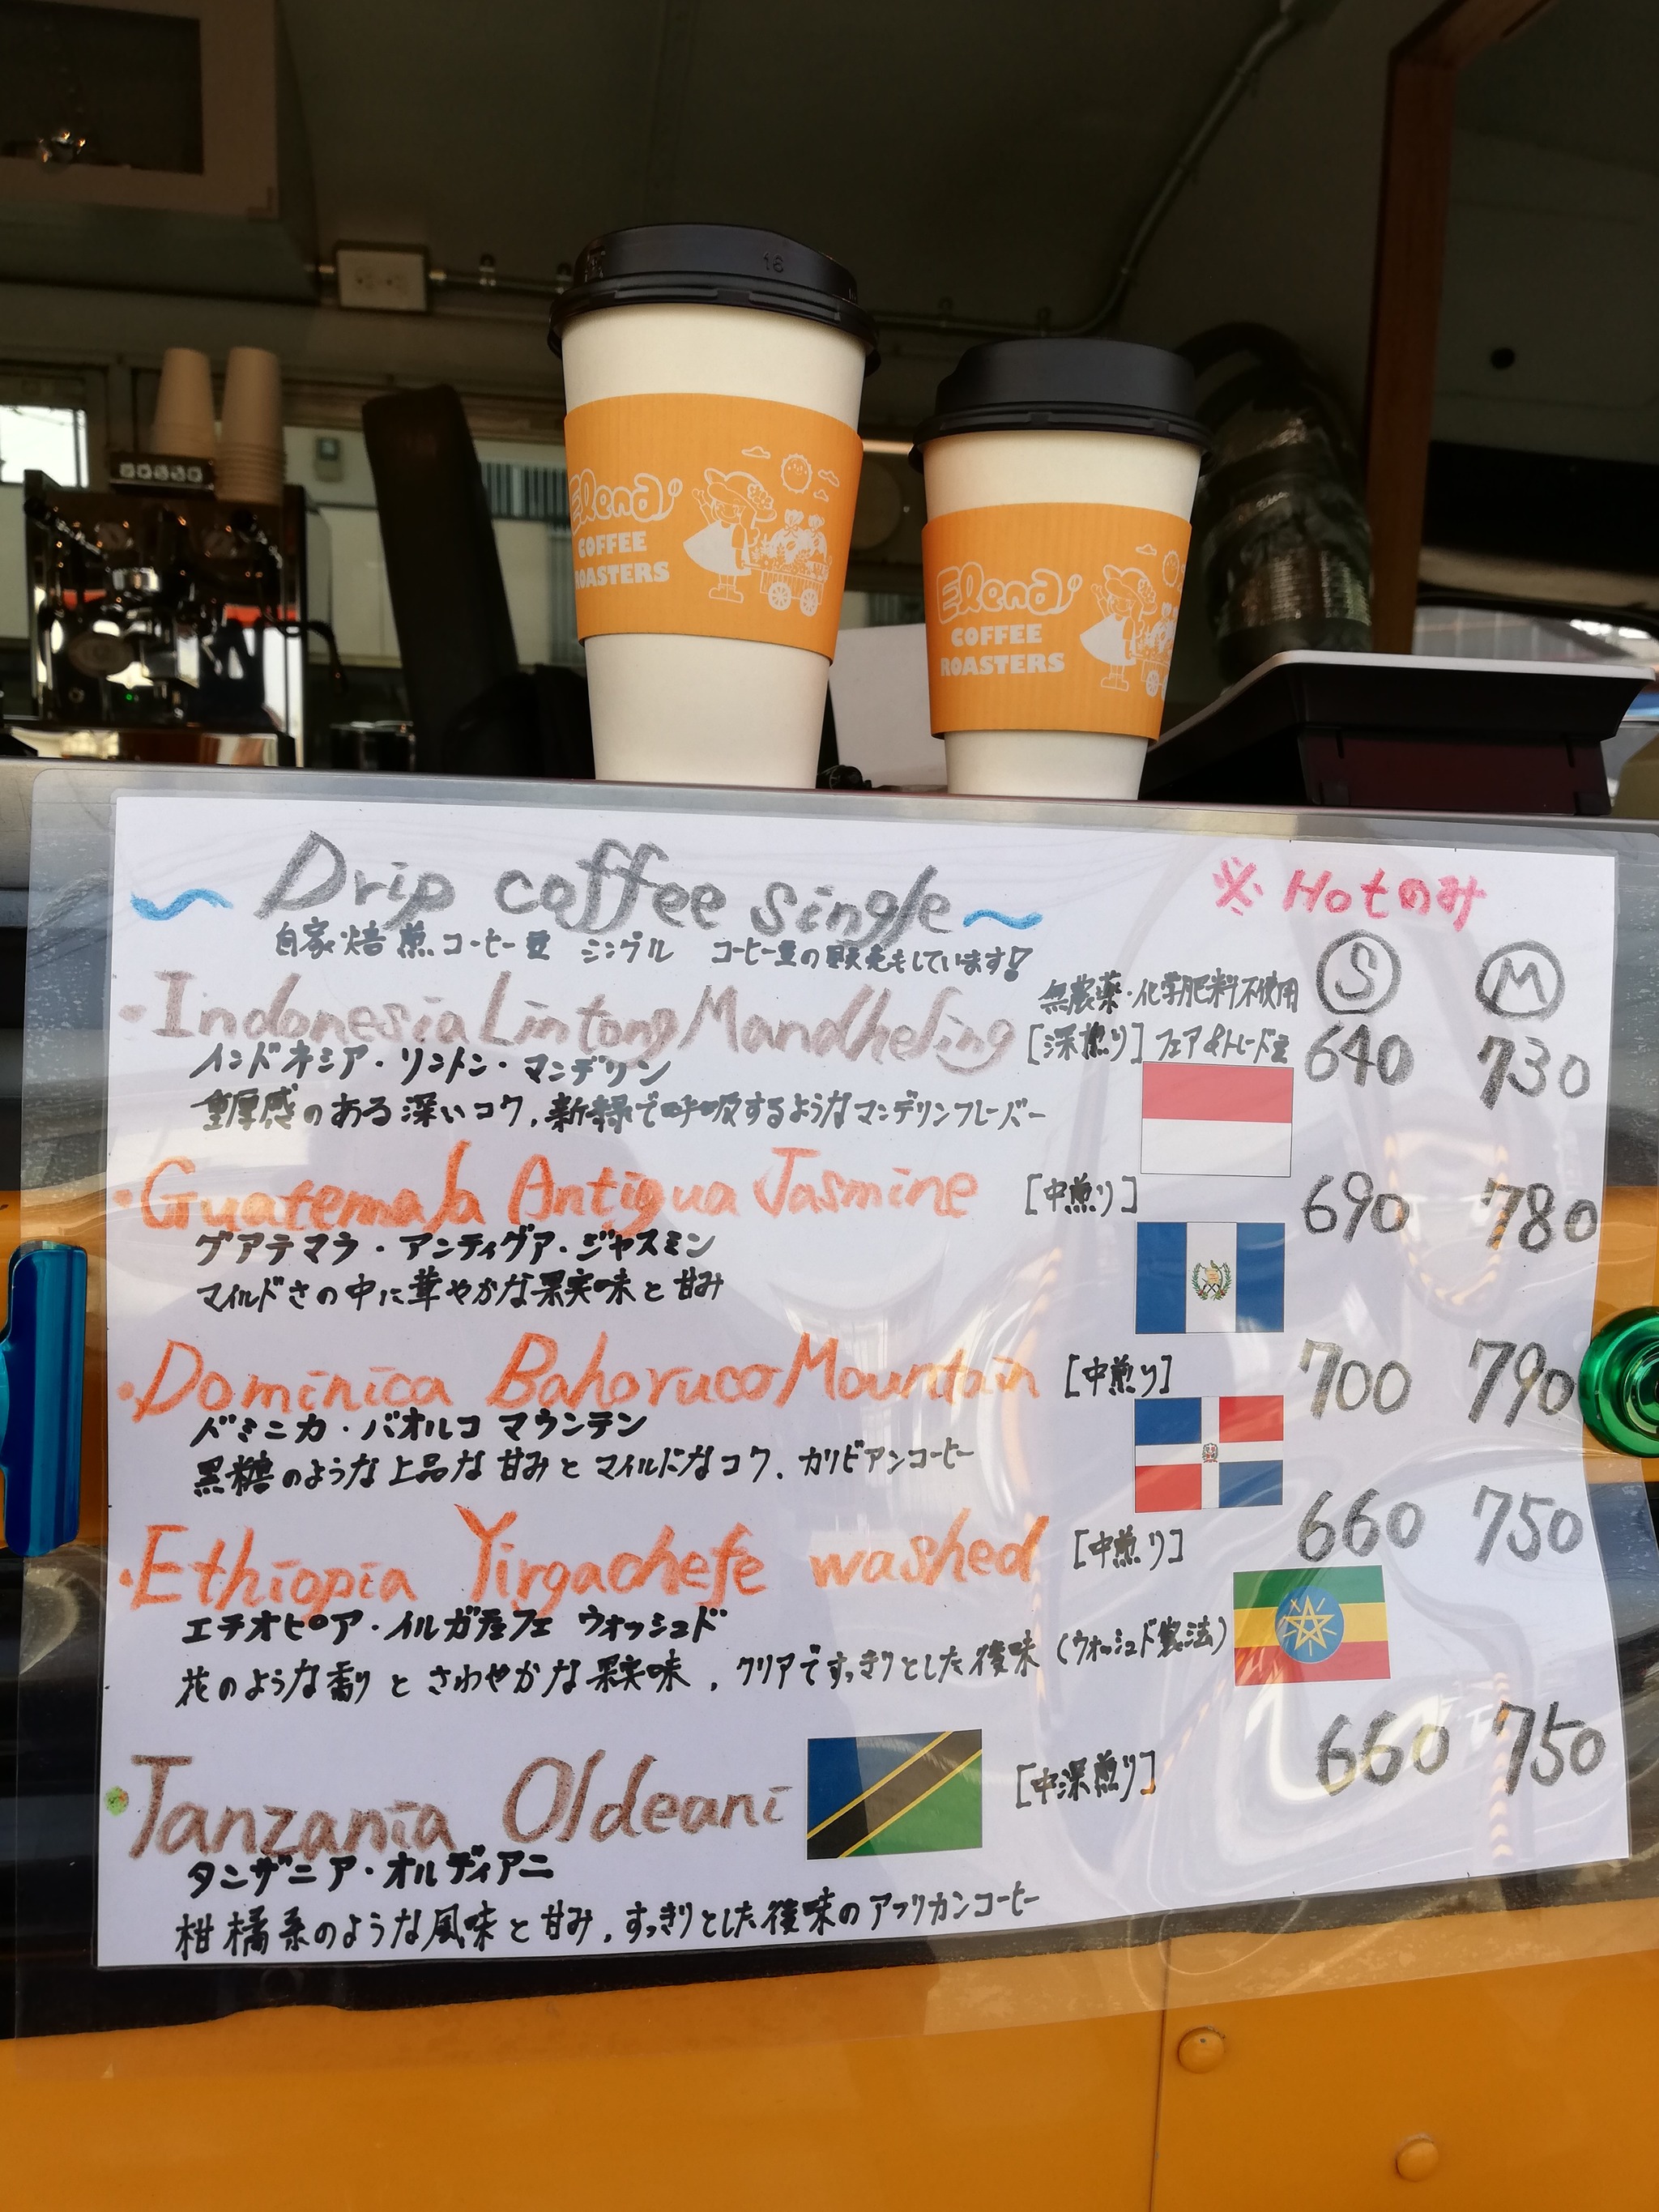 16
Elena
COFFEE
ROASTERS
Elena
COFFEE
ROASTERS
~ Drip coffee single ~
※ Hotのみ
自家焙煎コーヒー豆 シングル コーヒー豆の販売もしています!
Ⓢ Ⓜ
・Indonesia Lintong Mandheling
無農薬・化学肥料不使用
[深煎り] フェア&トレード豆 640 730
インドネシア・リントン・マンデリン
重厚感のある深いコク、新緑で呼吸するようなマンデリンフレーバー
・Guatemala Antigua Jasmine [中煎り] 690 780
グアテマラ・アンティグア・ジャスミン
マイルドさの中に華やかな果実味と甘み
・Dominica Bahoruco Mountain [中煎り] 700 790
ドミニカ・バオルコ マウンテン
黒糖のような上品な甘みとマイルドなコク、カリビアンコーヒー
・Ethiopia Yirgachefe washed [中煎り] 660 750
エチオピア・イルガチェフェ ウォッシュド
花のような香りとさわやかな果実味、クリアですっきりとした後味 (ウォッシュド製法)
・Tanzania Oldeani [中深煎り] 660 750
タンザニア・オルディアニ
柑橘系のような風味と甘み、すっきりとした後味のアフリカンコーヒー